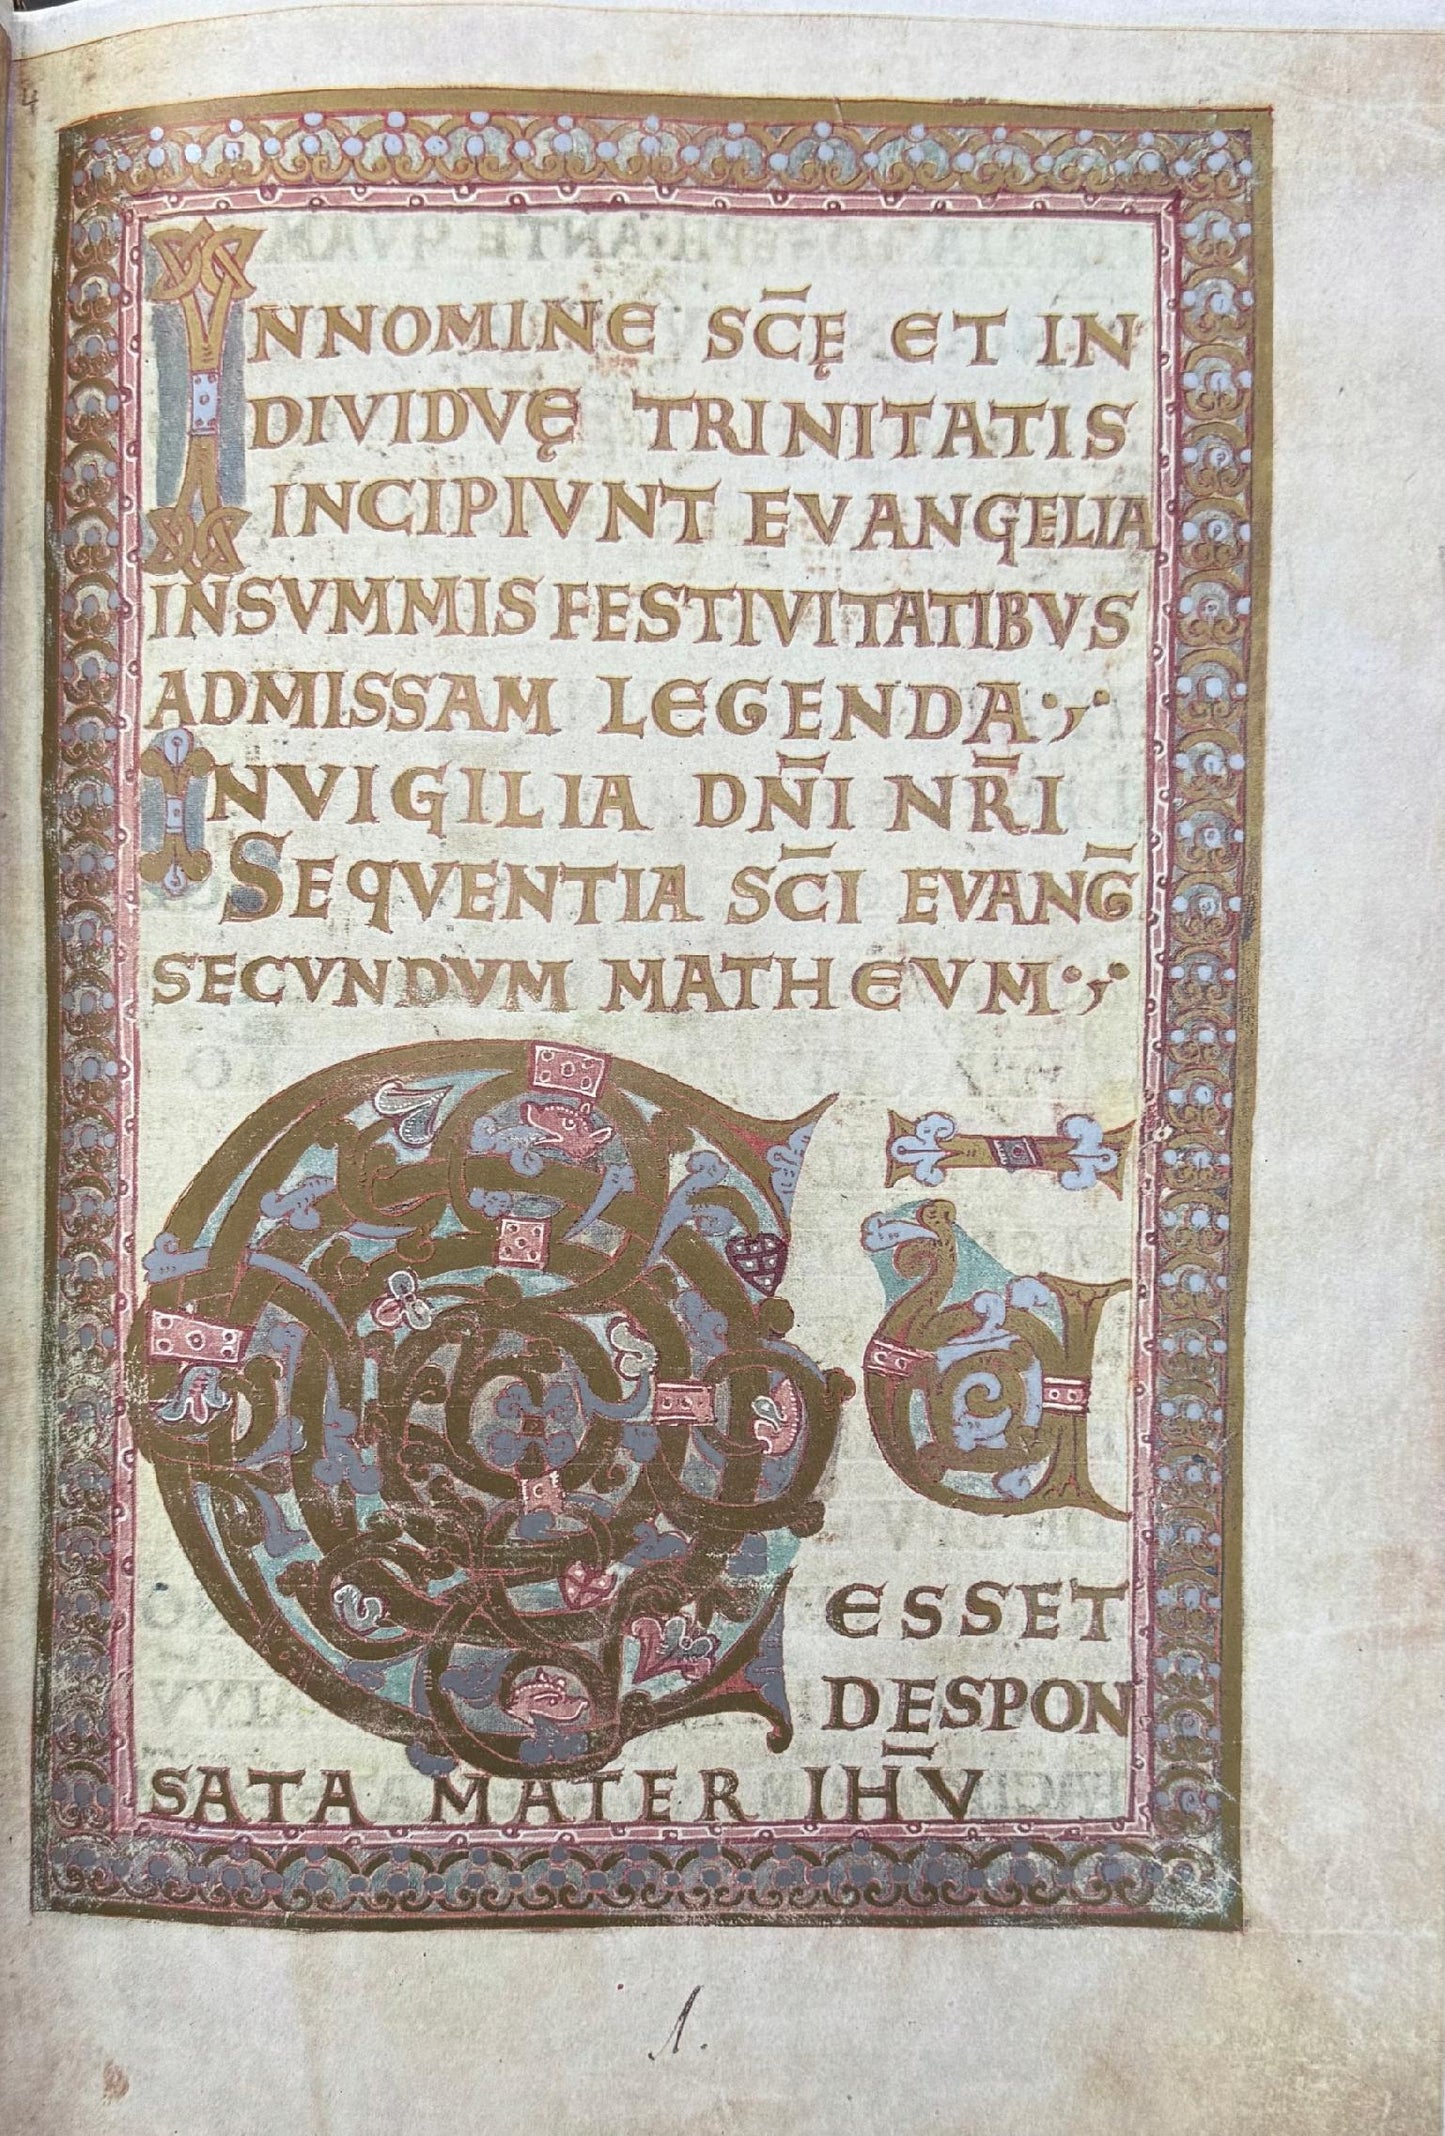 4
INNOMINE SC̄Ę ET IN
DIVIDVĘ TRINITATIS
INCIPIVNT EVANGELIA
INSVMMIS FESTIVITATIBVS
ADMISSAM LEGENDA·,·
INVIGILIA DN̄I NR̄I
SEQVENTIA SC̄I EVANḠ
SECVNDVM MATHEVM·,·
CŪ
ESSET
DESPON
SATA MATER IH̄V
1.